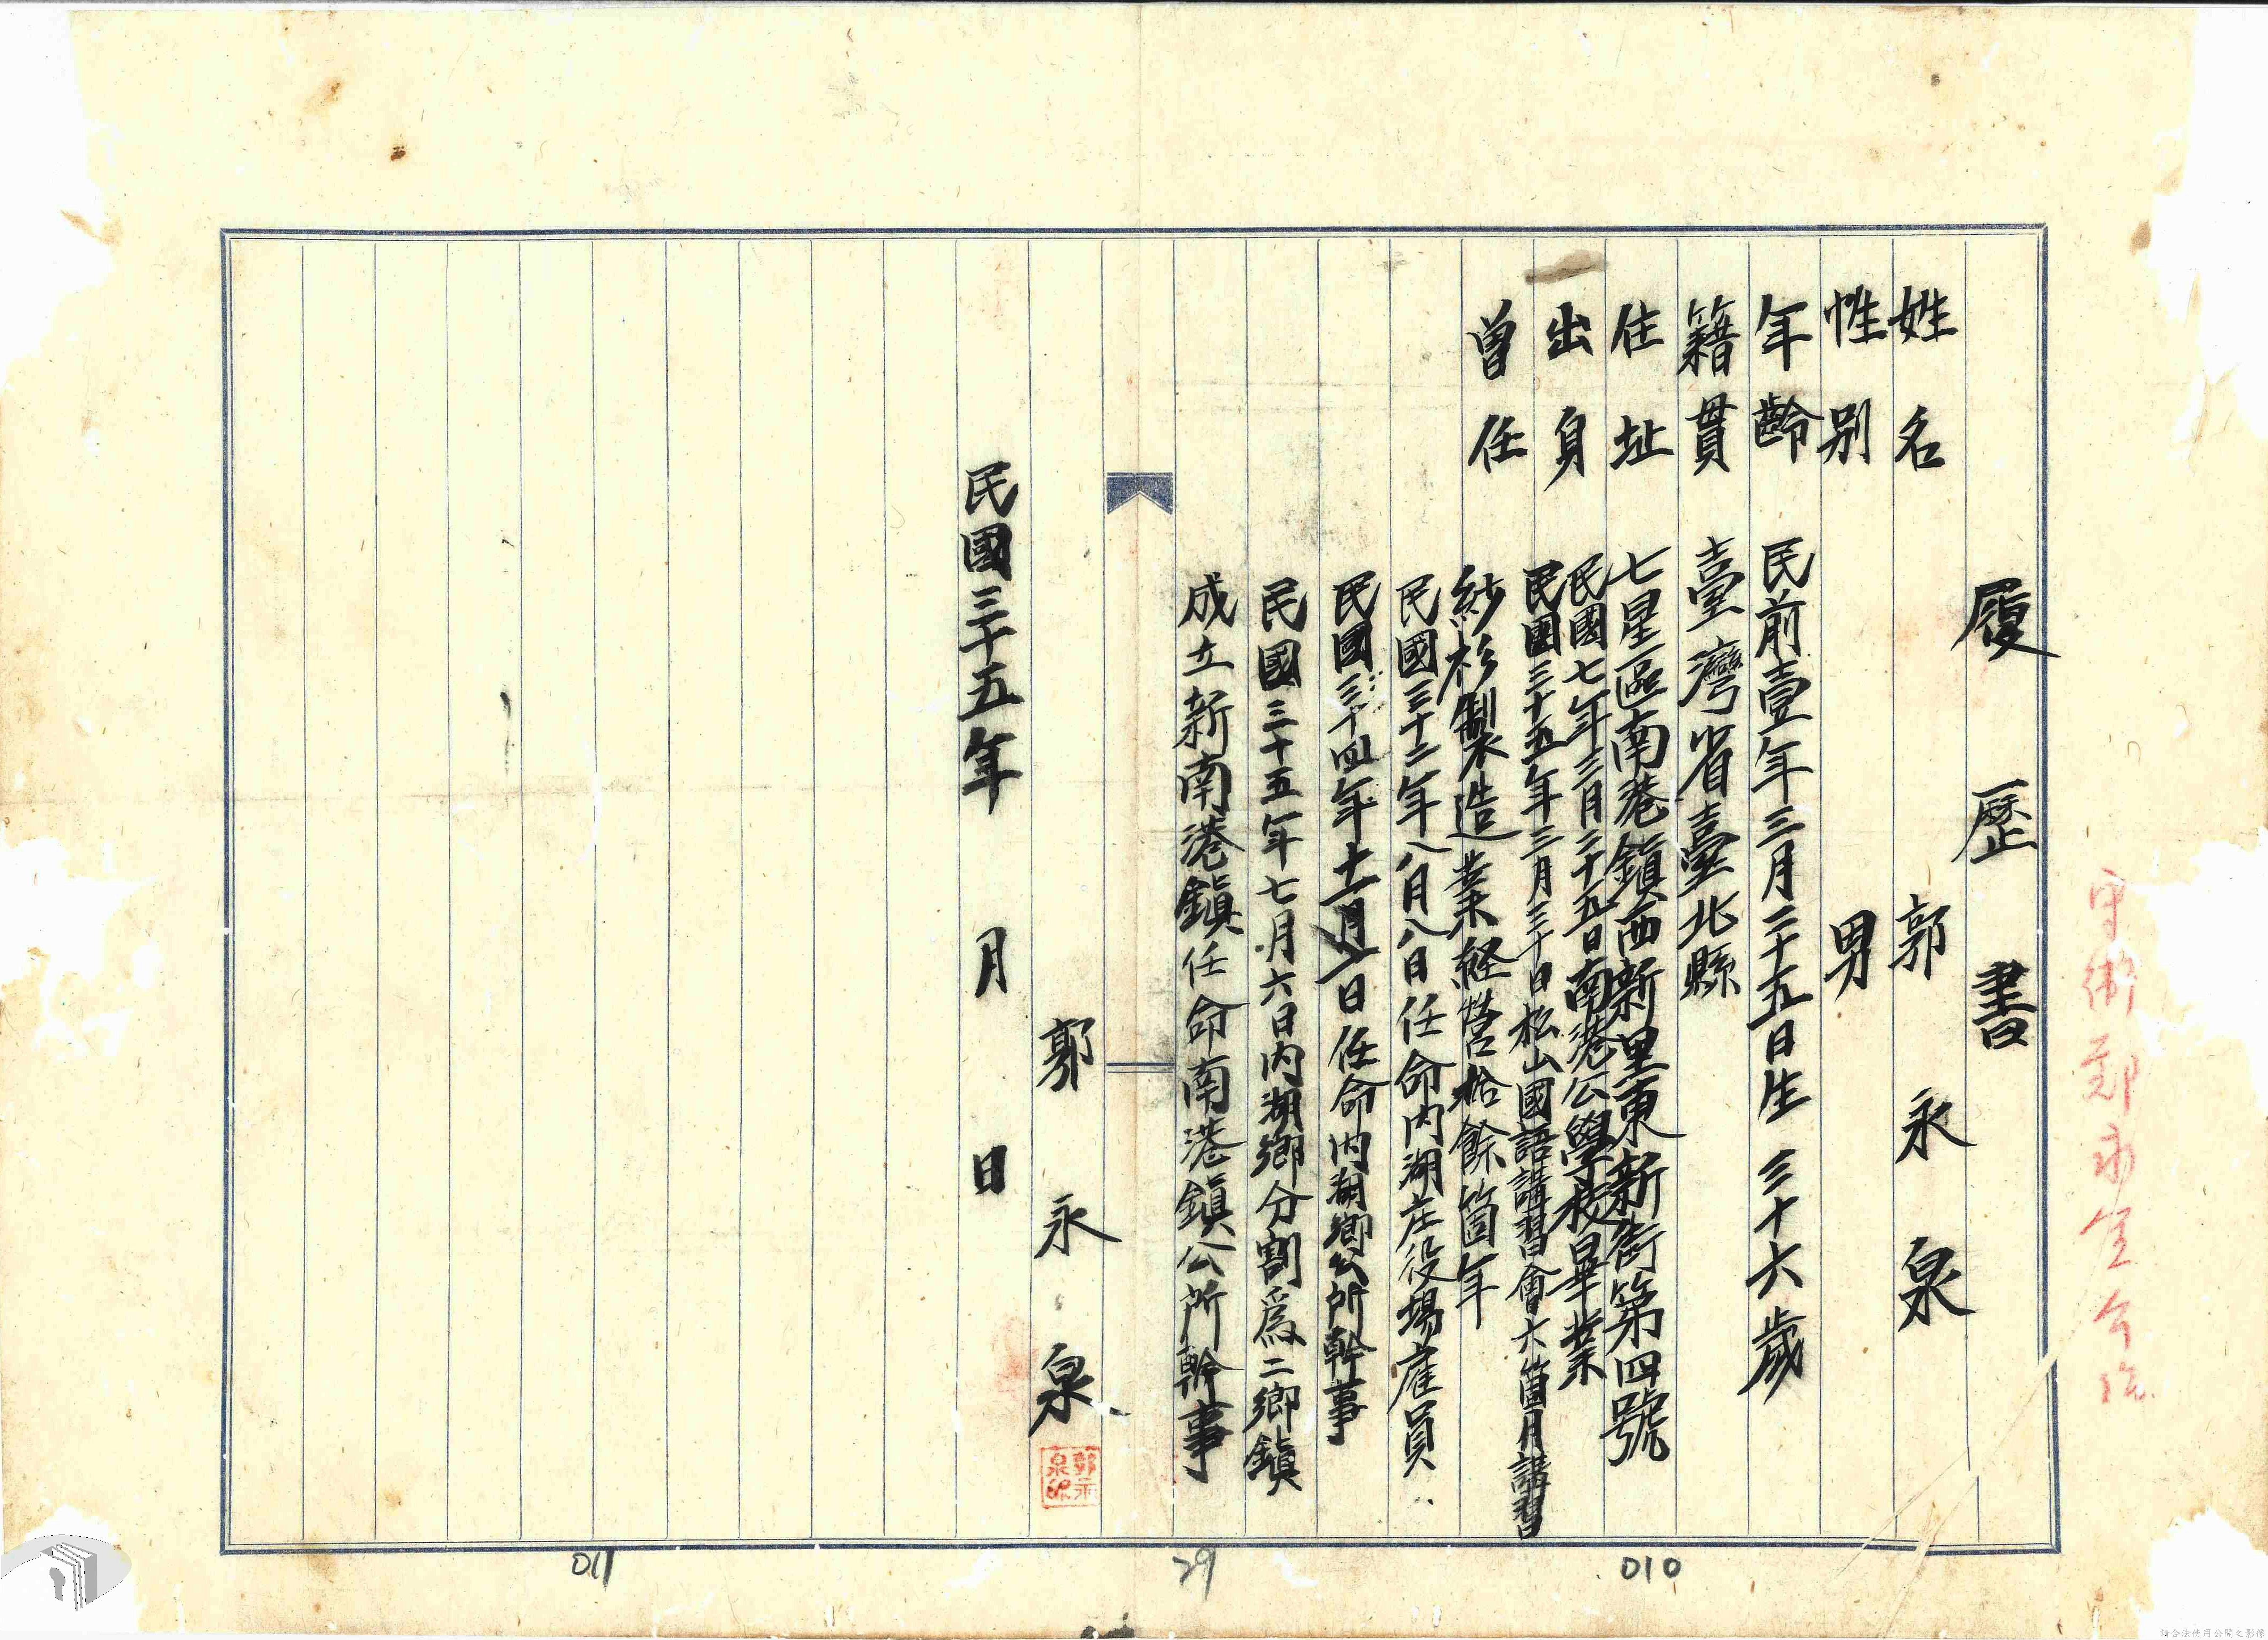 履歷書
姓名 郭永泉
性別 男
年齡 民前壹年三月二十五日生 三十六歲
籍貫 臺灣省臺北縣
住址 七星區南港鎮西新里東新街第四號
出身 民國七年三月二十五日南港公學校畢業
民國三十五年三月三十日松山國語講習會六箇月講習
曾任 紗衫製造業経營拾餘箇年
民國三十二年八月八日任命内湖庄役場雇員
民國三十四年十一月八日任命内湖鄉公所幹事
民國三十五年七月六日内湖鄉分割爲二鄉鎮
成立新南港鎮任命南港鎮公所幹事
郭永泉
郭永泉印
民國三十五年 月 日
010
29
011
請合法使用公開之影像